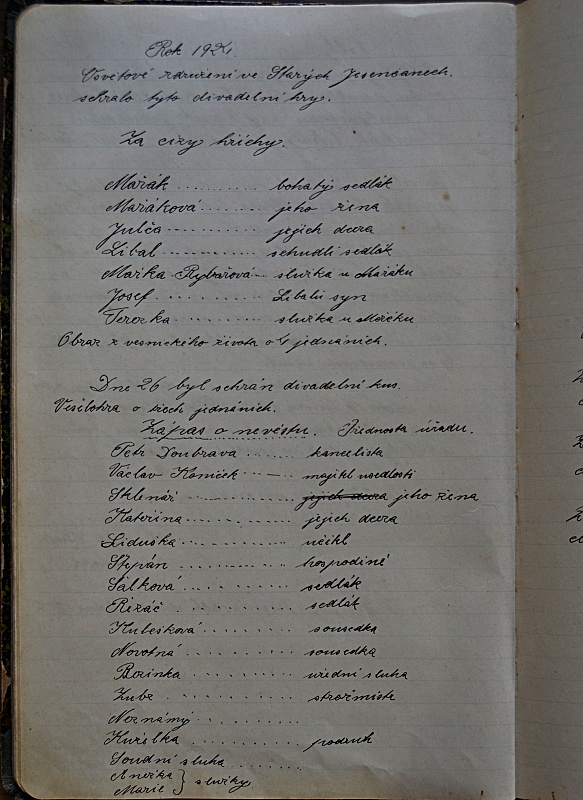 Rok 1921.
Osvětové združení ve Starých Jesenčanech.
sehralo tyto divadelní hry.
Za cizy hříchy.
Mařák .......... bohatý sedlák
Mařáková ........ jeho žena
Julča ---------- jejich dcera
Líbal ---------- schudlí sedlák
Mařka Rybářová -- služka u Mařáku
Josef .......... Líbalů syn
Terezka ......... služka u Mařáku
Obraz z vesnického života o 4 jednáních.
Dne 26 byl sehrán divadelní kus.
Veselohra o třech jednáních.
Zápas o nevěstu. Přednosta úřadu.
Petr Doubrava ....... kancelista
Václav Koníček ------ majitel usedlosti
Sklenář ............ jejich dcera jeho žena
Kateřina ........... jejich dcera
Liduška ........... učitel
Štěpán ........... hospodině
Šálková .......... sedlák
Řizáč .......... sedlák
Kubešková ......... sousedka
Novotná .......... sousedka
Berinka .......... uřední sluha
Zubr .......... strážmistr
Neznámý ..........
Kužílka .......... podruh
Soudní sluha ........
Anežka } služky
Marie